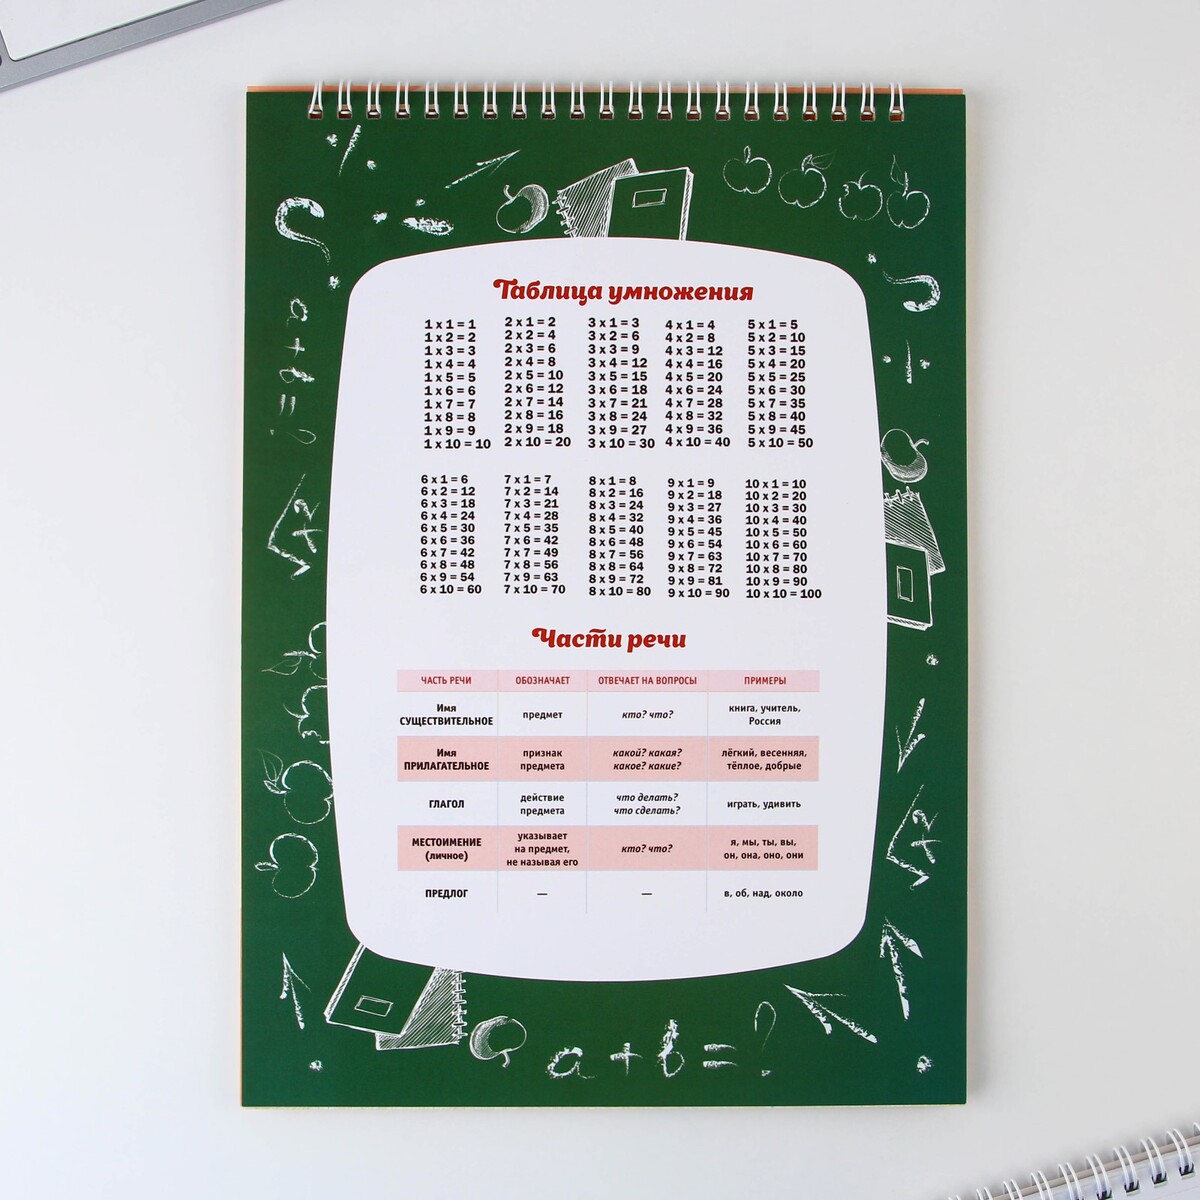 Таблица умножения
1 x 1 = 1
1 x 2 = 2
1 x 3 = 3
1 x 4 = 4
1 x 5 = 5
1 x 6 = 6
1 x 7 = 7
1 x 8 = 8
1 x 9 = 9
1 x 10 = 10
2 x 1 = 2
2 x 2 = 4
2 x 3 = 6
2 x 4 = 8
2 x 5 = 10
2 x 6 = 12
2 x 7 = 14
2 x 8 = 16
2 x 9 = 18
2 x 10 = 20
3 x 1 = 3
3 x 2 = 6
3 x 3 = 9
3 x 4 = 12
3 x 5 = 15
3 x 6 = 18
3 x 7 = 21
3 x 8 = 24
3 x 9 = 27
3 x 10 = 30
4 x 1 = 4
4 x 2 = 8
4 x 3 = 12
4 x 4 = 16
4 x 5 = 20
4 x 6 = 24
4 x 7 = 28
4 x 8 = 32
4 x 9 = 36
4 x 10 = 40
5 x 1 = 5
5 x 2 = 10
5 x 3 = 15
5 x 4 = 20
5 x 5 = 25
5 x 6 = 30
5 x 7 = 35
5 x 8 = 40
5 x 9 = 45
5 x 10 = 50
6 x 1 = 6
6 x 2 = 12
6 x 3 = 18
6 x 4 = 24
6 x 5 = 30
6 x 6 = 36
6 x 7 = 42
6 x 8 = 48
6 x 9 = 54
6 x 10 = 60
7 x 1 = 7
7 x 2 = 14
7 x 3 = 21
7 x 4 = 28
7 x 5 = 35
7 x 6 = 42
7 x 7 = 49
7 x 8 = 56
7 x 9 = 63
7 x 10 = 70
8 x 1 = 8
8 x 2 = 16
8 x 3 = 24
8 x 4 = 32
8 x 5 = 40
8 x 6 = 48
8 x 7 = 56
8 x 8 = 64
8 x 9 = 72
8 x 10 = 80
9 x 1 = 9
9 x 2 = 18
9 x 3 = 27
9 x 4 = 36
9 x 5 = 45
9 x 6 = 54
9 x 7 = 63
9 x 8 = 72
9 x 9 = 81
9 x 10 = 90
10 x 1 = 10
10 x 2 = 20
10 x 3 = 30
10 x 4 = 40
10 x 5 = 50
10 x 6 = 60
10 x 7 = 70
10 x 8 = 80
10 x 9 = 90
10 x 10 = 100
Части речи
ЧАСТЬ РЕЧИ ОБОЗНАЧАЕТ ОТВЕЧАЕТ НА ВОПРОСЫ ПРИМЕРЫ
Имя
СУЩЕСТВИТЕЛЬНОЕ
предмет
кто? что?
книга, учитель,
Россия
Имя
ПРИЛАГАТЕЛЬНОЕ
признак
предмета
какой? какая?
какое? какие?
лёгкий, весенняя,
тёплое, добрые
ГЛАГОЛ
действие
предмета
что делать?
что сделать?
играть, удивить
МЕСТОИМЕНИЕ
(личное)
указывает
на предмет,
не называя его
кто? что?
я, мы, ты, вы,
он, она, оно, они
ПРЕДЛОГ
—
—
в, об, над, около
a + b = ?
a + b = ?
√x2
√x2